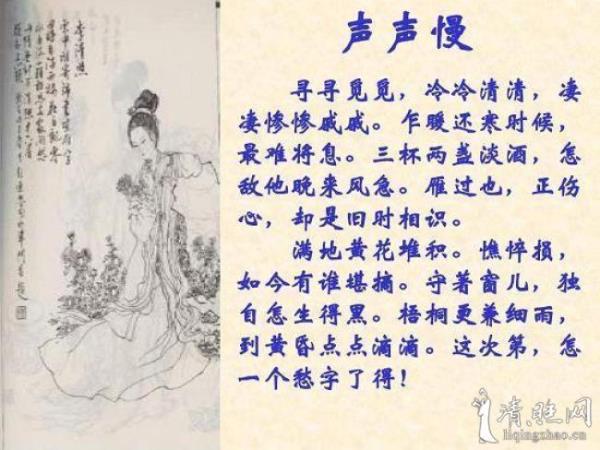 声声慢
寻寻觅觅，冷冷清清，凄
凄惨惨戚戚。乍暖还寒时候，
最难将息。三杯两盏淡酒，怎
敌他晚来风急。雁过也，正伤
心，却是旧时相识。
满地黄花堆积。憔悴损，
如今有谁堪摘。守著窗儿，独
自怎生得黑。梧桐更兼细雨，
到黄昏点点滴滴。这次第，怎
一个愁字了得！
李清照
清照网
liqingzhao.cn